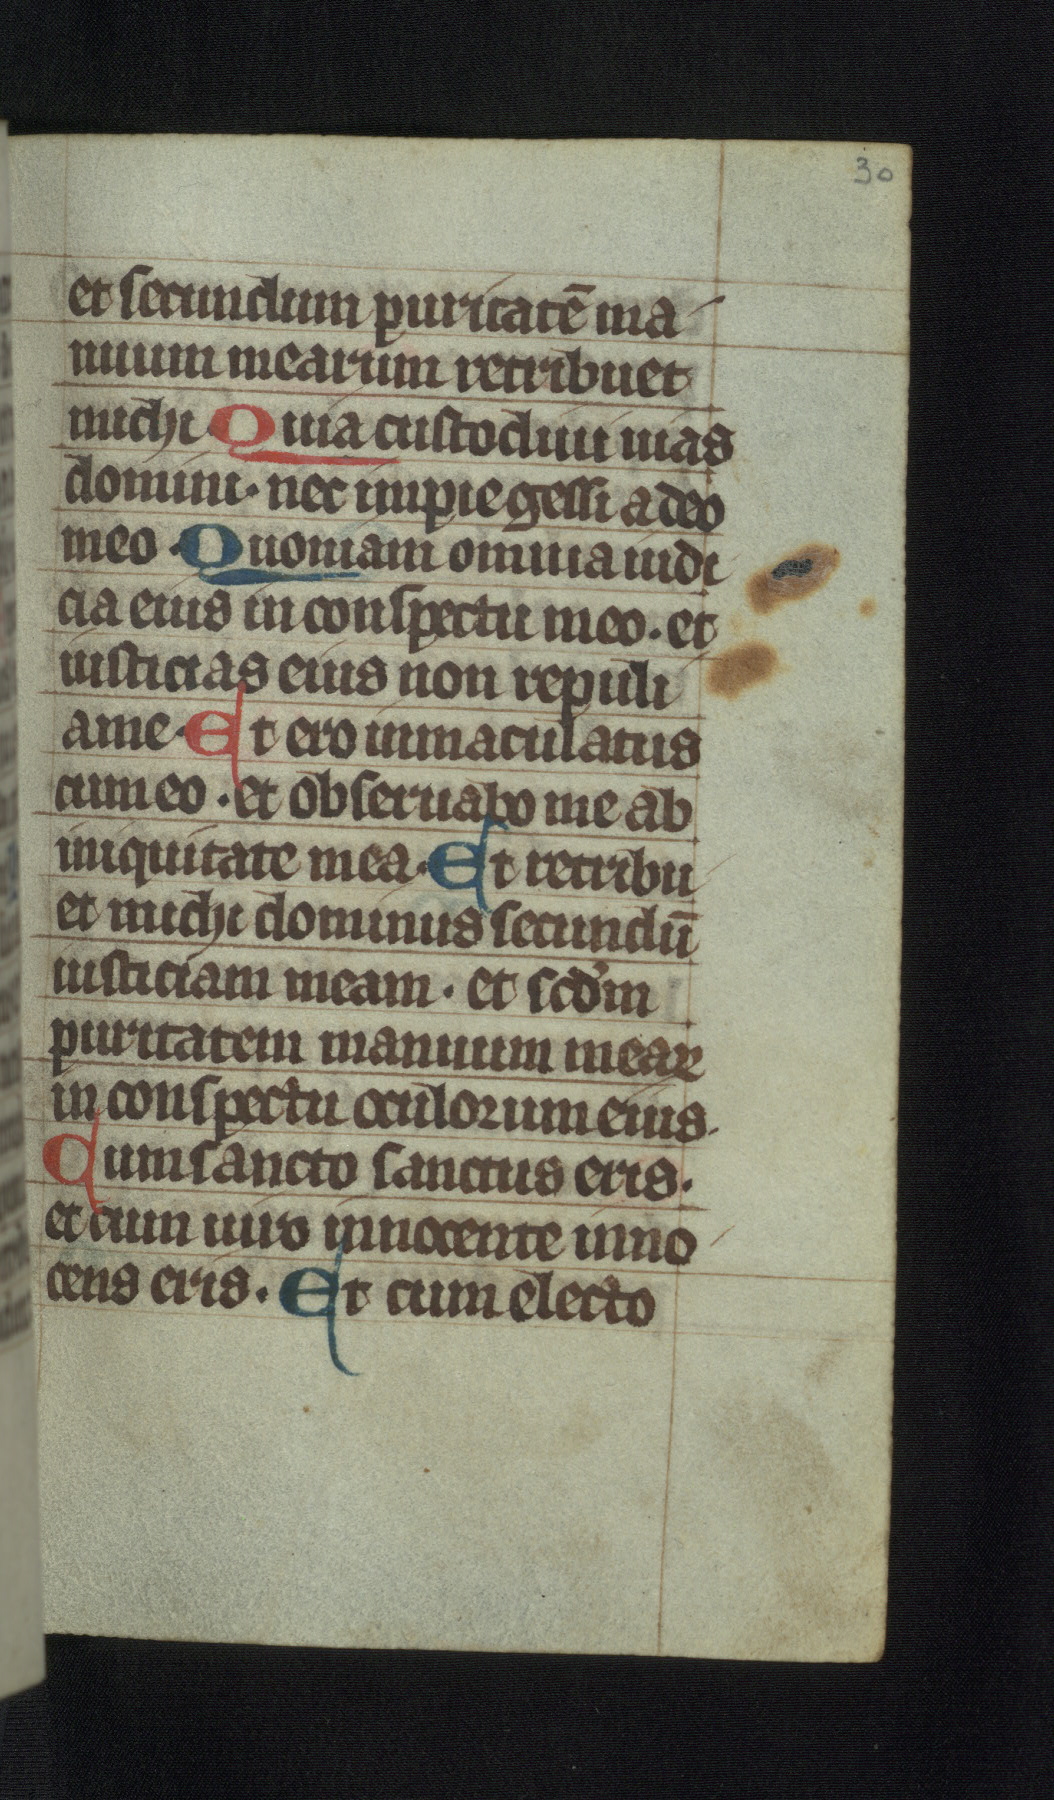 30
et secundum puritatē ma
nuum mearum retribuet
michi. Quia custodiui uias
domini. nec impie gessi a deo
meo. Quoniam omnia iudi
cia eius in conspectu meo. et
iusticias eius non repuli
ame. Et ero inmaculatus
cum eo. et obseruabo me ab
iniquitate mea. Et retribu
et michi dominus secundū
iusticiam meam. et scd'm
puritatem manuum meaꝝ
in conspectu oculorum eius.
Cum sancto sanctus eris.
et cum uiro innocente inno
cens eris. Et cum electo